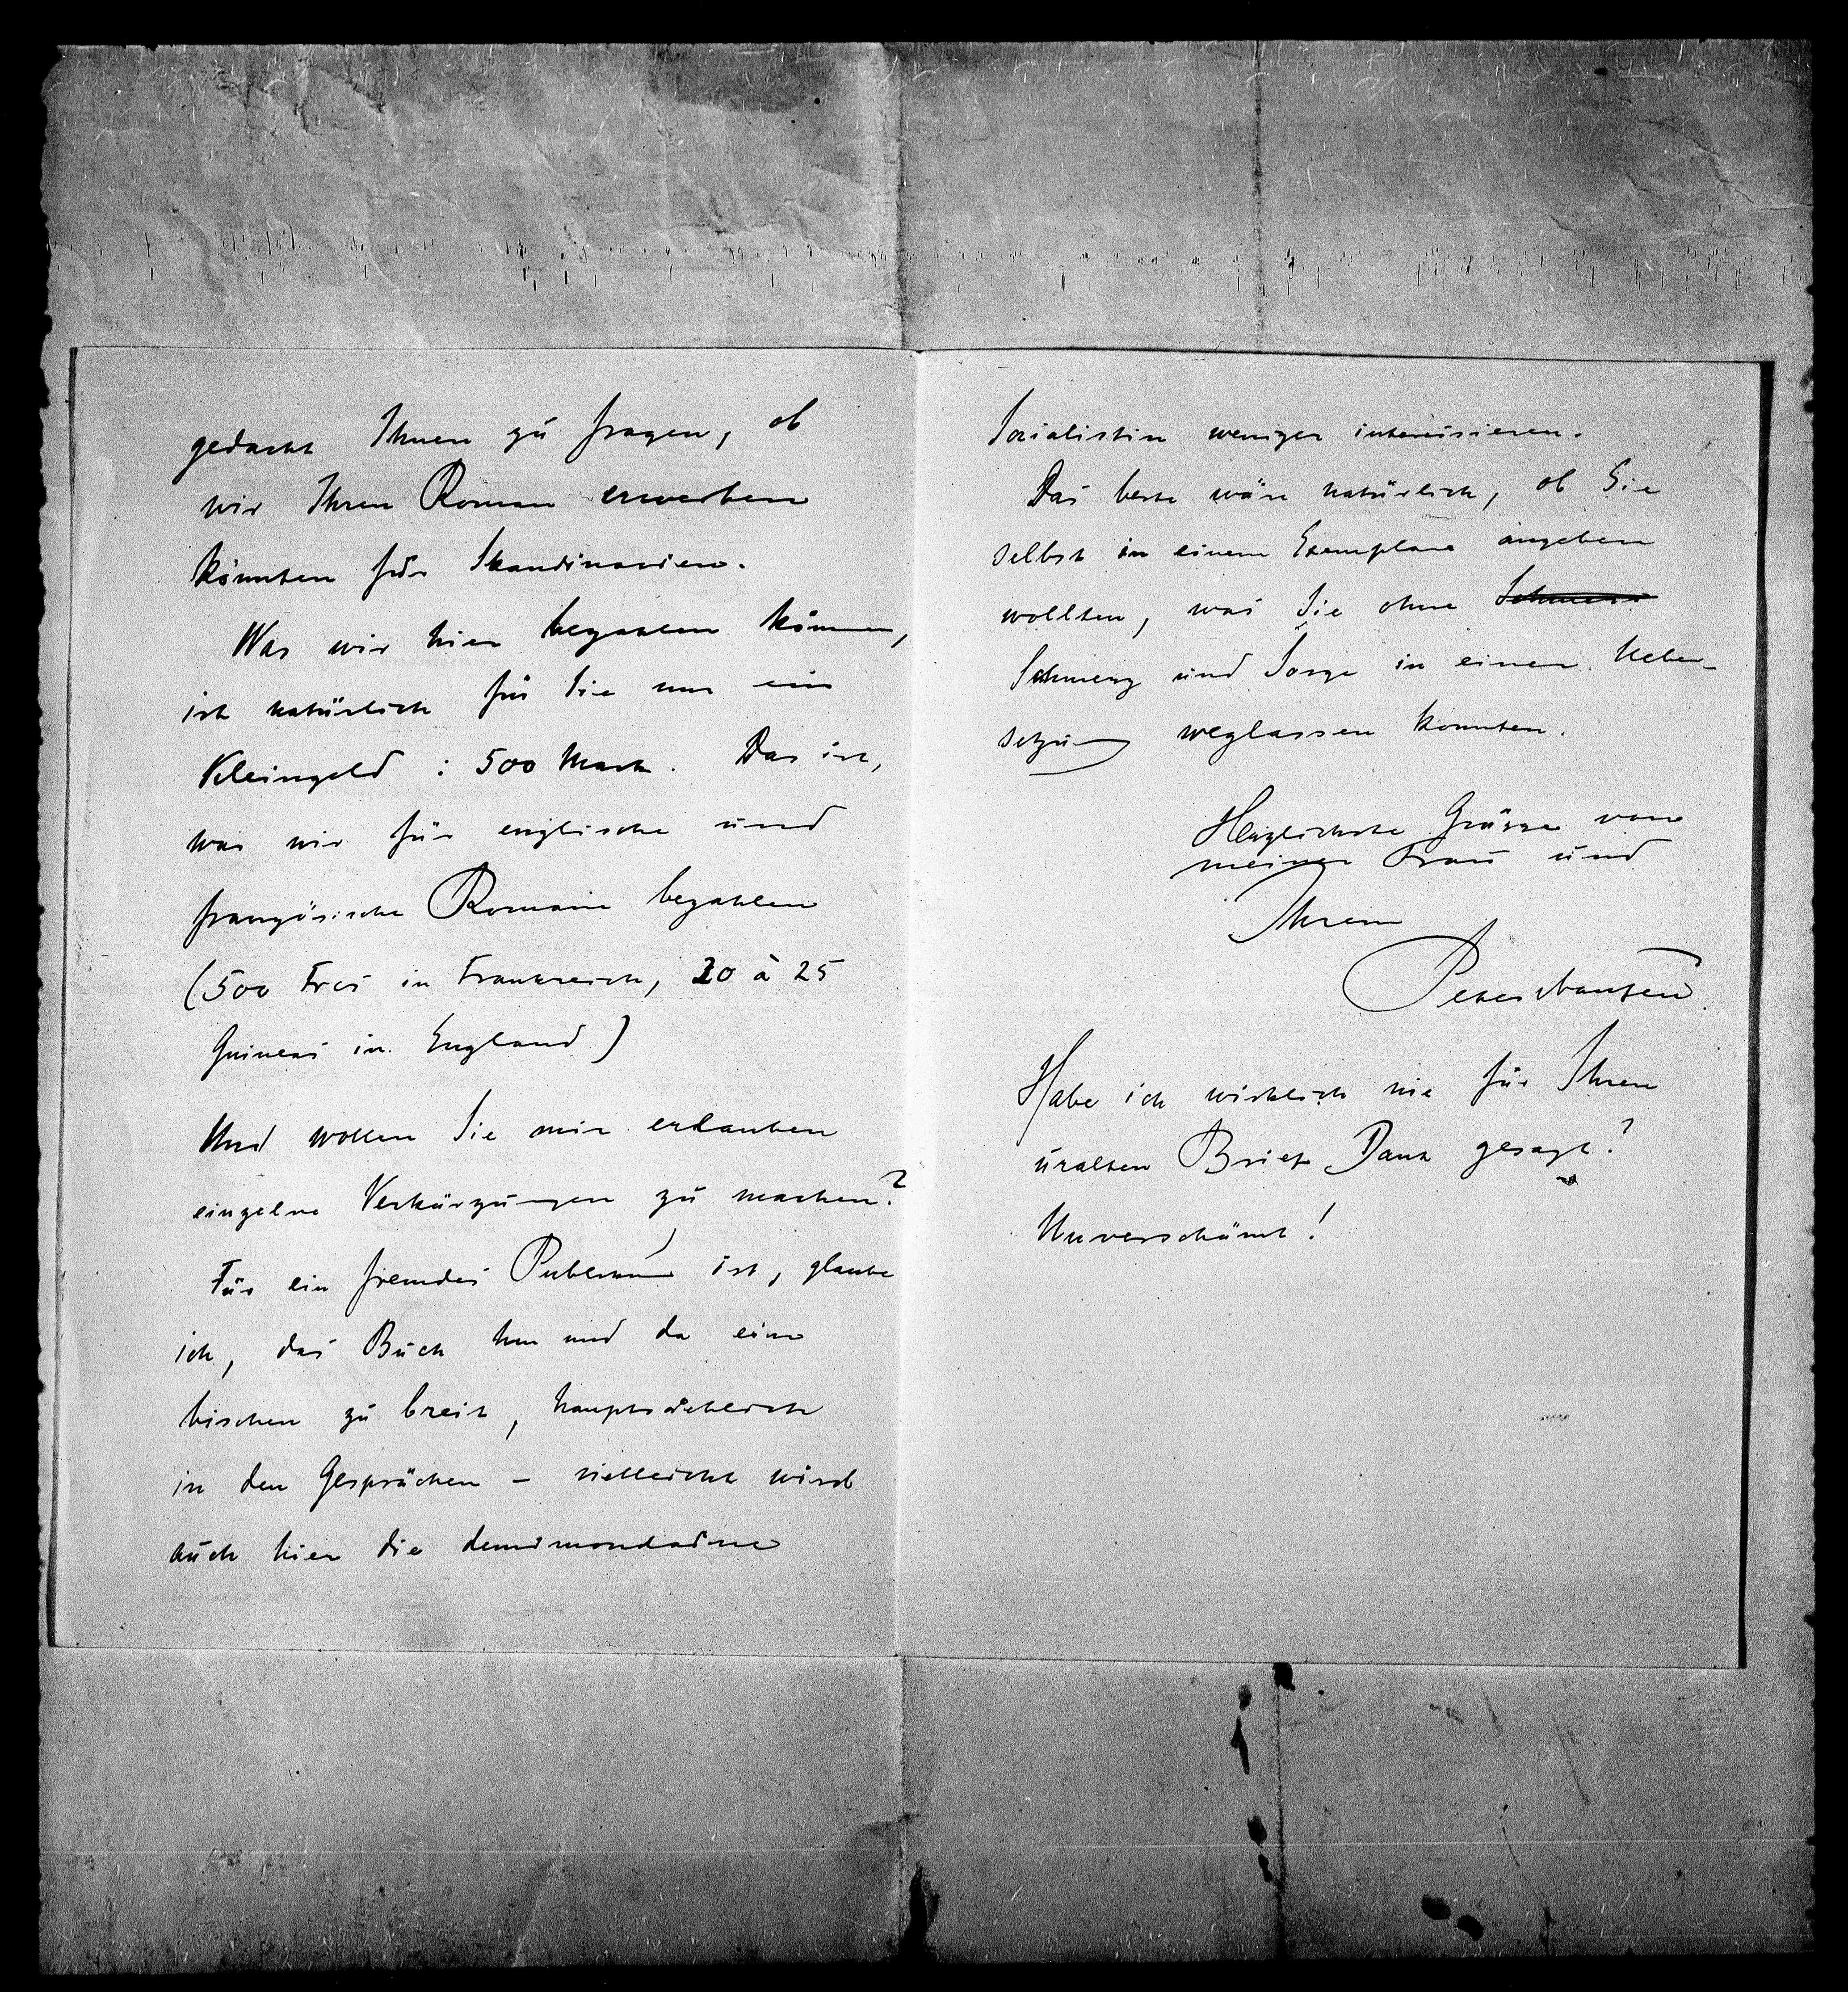 gedacht Ihnen zu fragen, ob
wir Ihren Roman erwerben
könnten für Skandinavien.
Was wir hier bezahlen können,
ist natürlich für Sie nur ein
Kleingeld : 500 Mark. Das ist,
was wir für englische und
französische Romane bezahlen
(500 Frcs in Frankreich, 20 à 25
Guineas in England)
Und wollen Sie mir erlauben
einzelne Verkürzungen zu machen?
Für ein fremdes Publikum ist, glaube
ich, das Buch hin und da ein
bischen zu breit, hauptsächlich
in den Gesprächen – vielleicht wird
auch hier die demimondaine
Sozialistin weniger interessieren.
Das beste wäre natürlich, ob Sie
selbst in einem Exemplare angeben
wollten, was Sie ohne Schmerz
Schmerz und Sorge in einer Ueber-
setzung weglassen konnten.
Herzlichste Grüsse von
meiner Frau und
Ihrem
Peter Nansen.
Habe ich wirklich nie für Ihren
uralten Brief Dank gesagt?
Unverschämt!